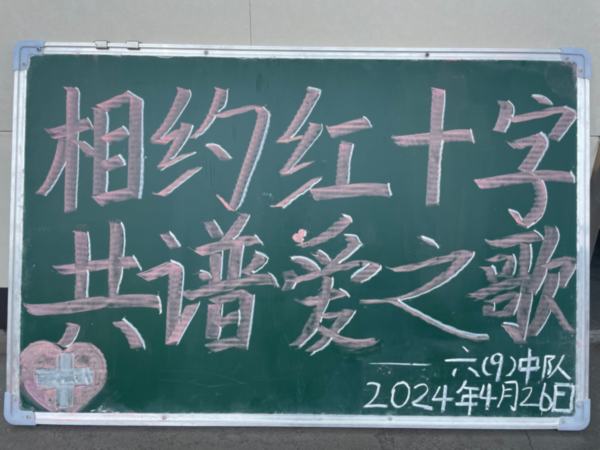 相约红十字
共谱爱之歌
——六(9)中队
2024年4月26日